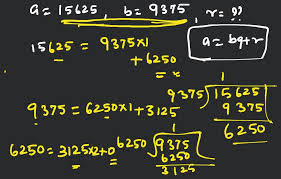 a = 15625, b = 9375, r = ??
a = bq+r
15625 = 9375×1
+6250
1
9375)15625
9375
6250
9375 = 6250×1+3125
1
6250)9375
6250
3125
6250 = 3125×2+0